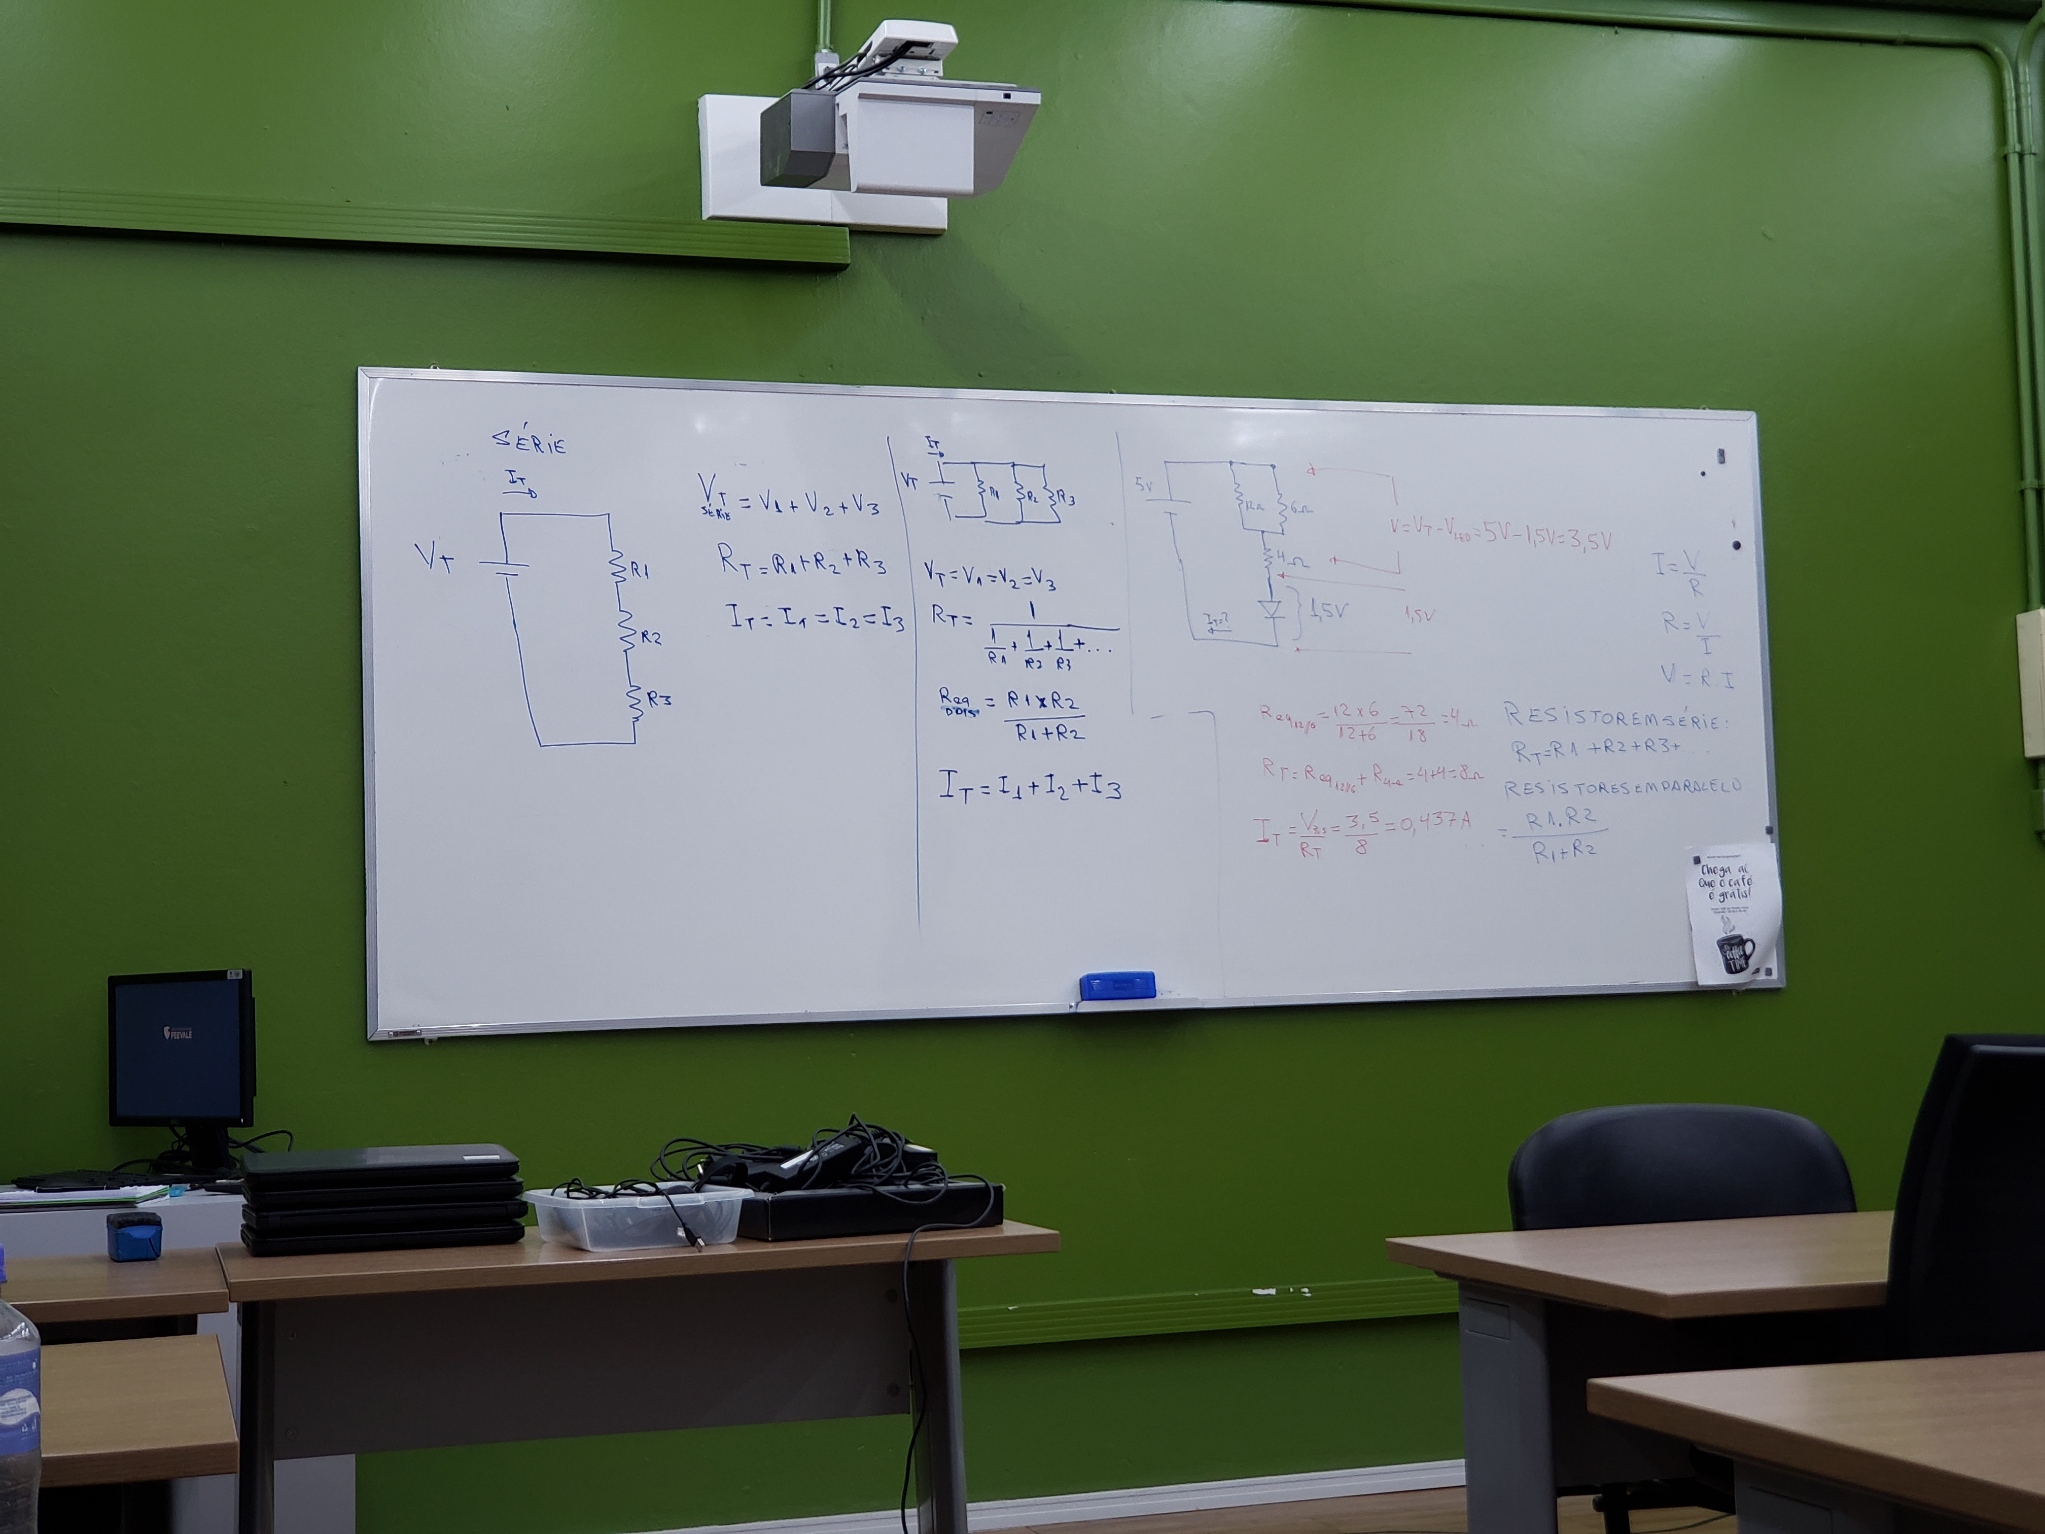 SÉRIE
IT
VT
R1
R2
R3
VT = V1 + V2 + V3
SÉRIE
RT = R1 + R2 + R3
IT = I1 = I2 = I3
IT
VT
R1
R2
R3
VT = V1 = V2 = V3
RT = 1
1/R1 + 1/R2 + 1/R3 + ...
Req = R1 x R2
DOIS
R1 + R2
IT = I1 + I2 + I3
5V
6Ω
4Ω
1,5V
IT=?
V = VT - VLED = 5V - 1,5V = 3,5V
1,5V
I = V/R
R = V/I
V = R.I
Req12//6 = 12 x 6 / 12 + 6 = 72 / 18 = 4Ω
RT = Req12//6 + R4Ω = 4 + 4 = 8Ω
IT = V3,5 / RT = 3,5 / 8 = 0,437A
RESISTOR EM SÉRIE:
RT = R1 + R2 + R3 + ...
RESISTORES EM PARALELO
= R1.R2
R1 + R2
Chega aí
Que o café
é grátis!
COFFEE
TIME
FEEVALE